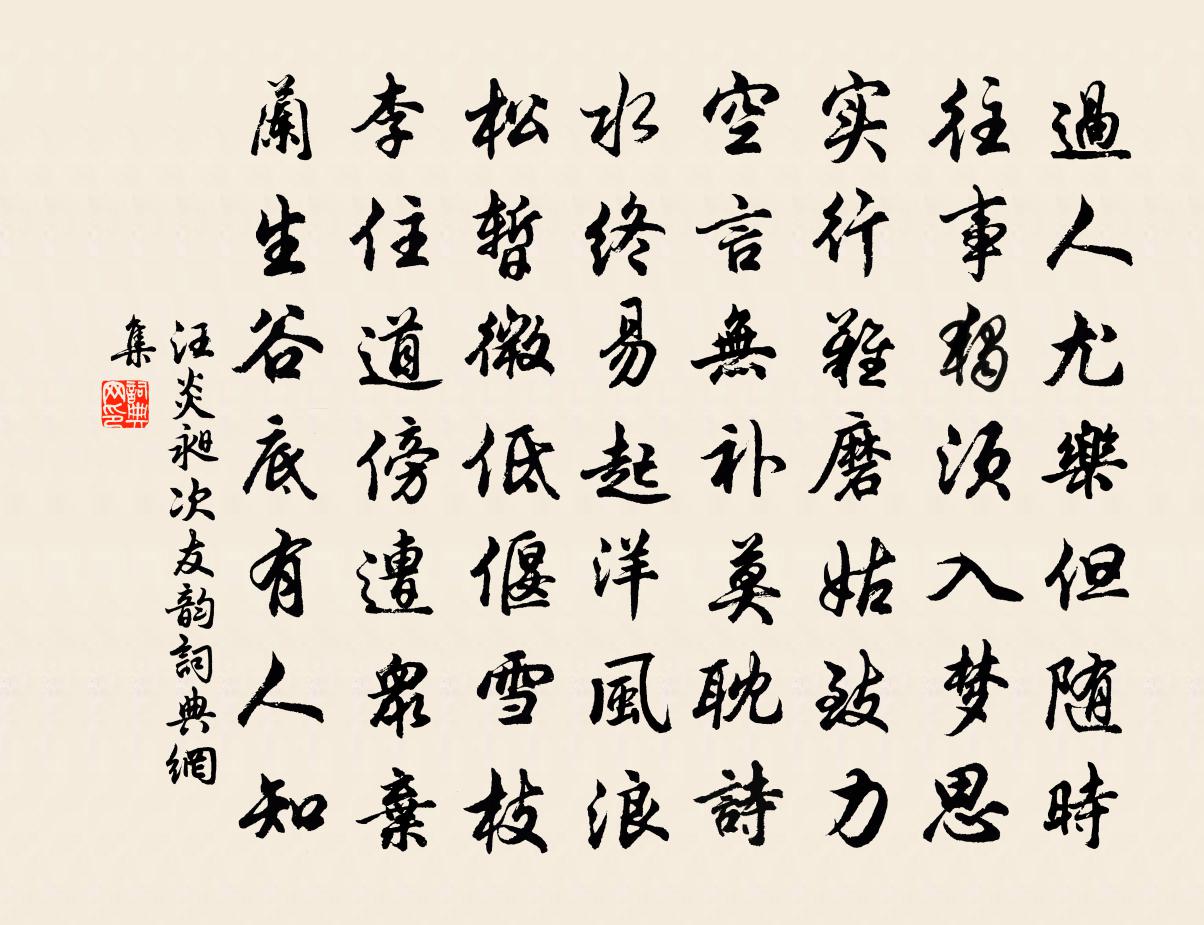 過人尤樂但随時
往事獨須入梦思
实行難磨姑致力
空言無补莫耽詩
水终易起洋風浪
松暫微低偃雪枝
李住道傍遭衆棄
蘭生谷底有人知
汪炎昶次友韵詞典網
集
詞典
网印